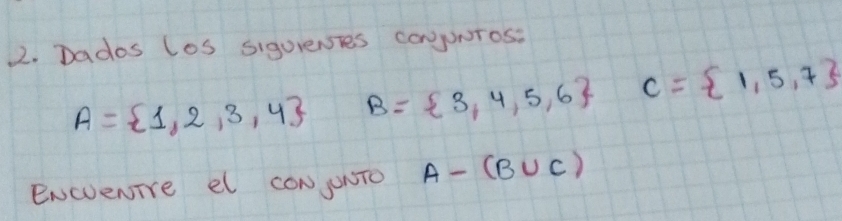 2. Dados los siguientes conjuntos:
A = {1, 2, 3, 4} B = {3, 4, 5, 6} C = {1, 5, 7}
Encuentre el conjunto A - (B ∪ C)